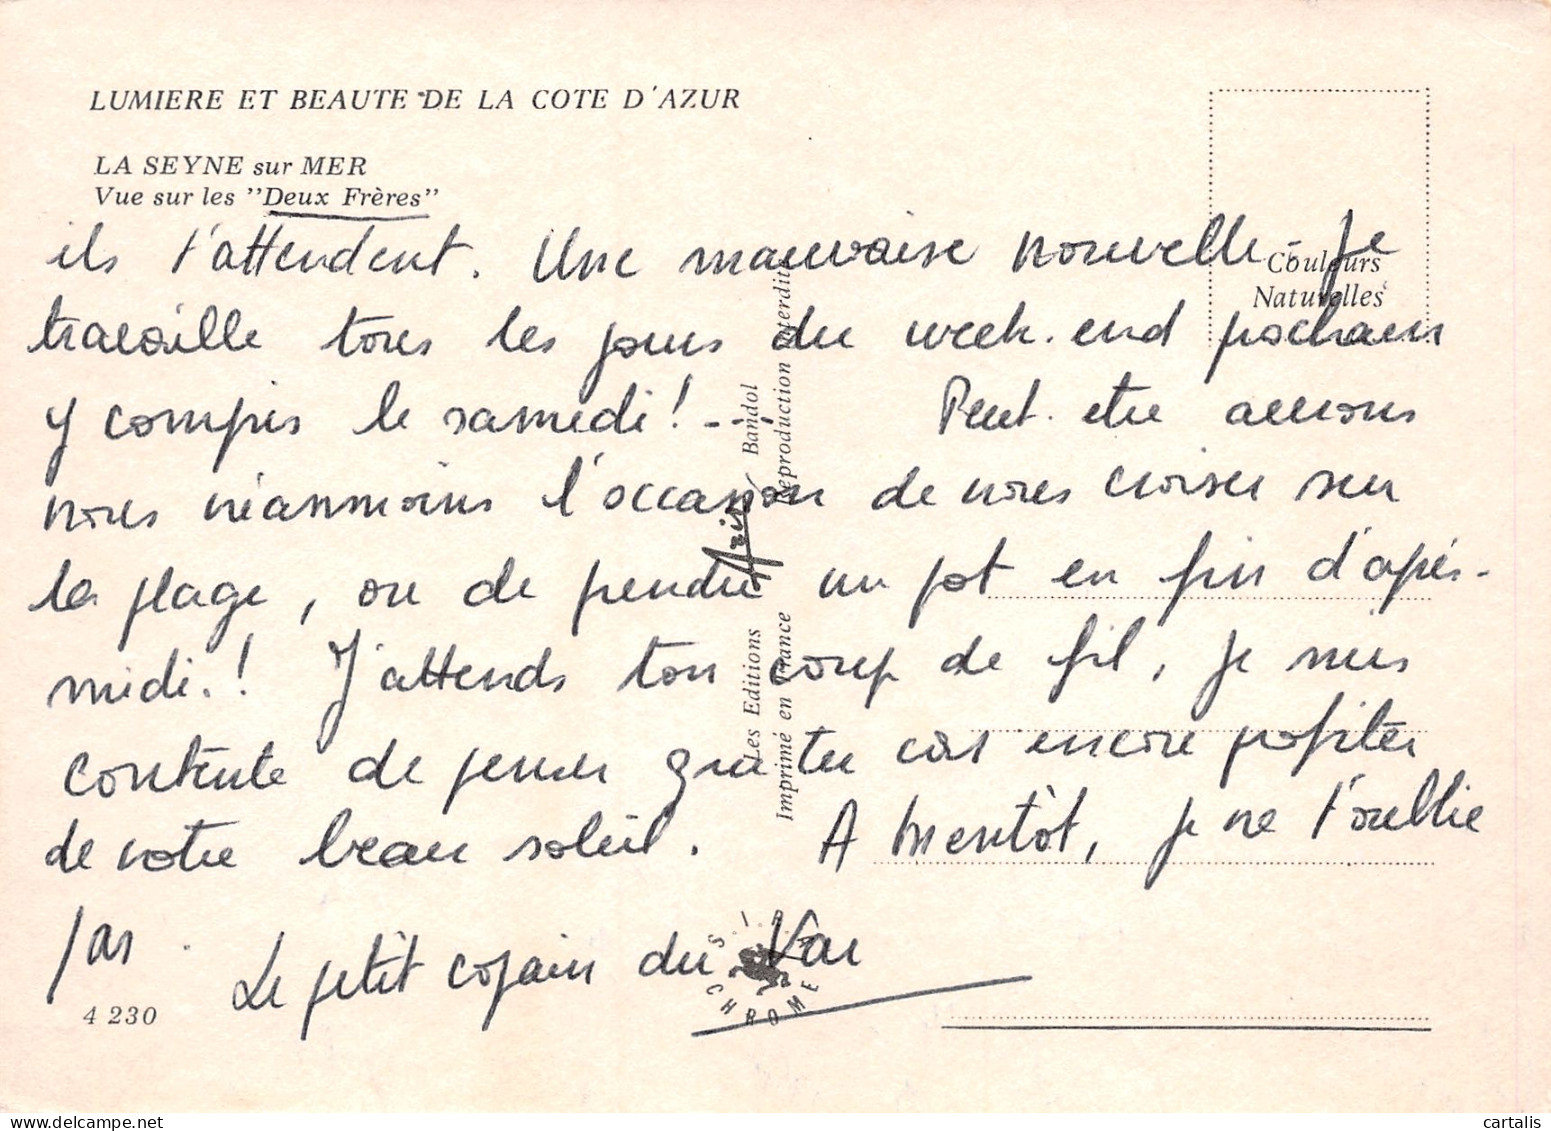 LUMIERE ET BEAUTE DE LA COTE D'AZUR
LA SEYNE sur MER
Vue sur les "Deux Frères"
Couleurs
Naturelles
ils t'attendent. Une mauvaise nouvelle - Je
travaille tous les jours du week-end prochain
y compris le samedi! - Peut-être aurons
nous néanmoins l'occasion de nous croiser sur
la plage, ou de prendre un pot en fin d'après-
midi.! J'attends ton coup de fil, je suis
contente de penser que tu vas encore profiter
de votre beau soleil. A bientôt, je ne t'oublie
pas.
Le petit copain du Var
Les Editions Aris Bandol
Imprimé en France Reproduction interdite
CHROME
4 230
cartalis